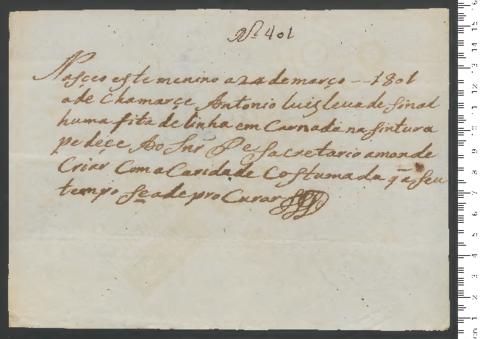 Nº 401
Nasceo este menino a 24 de março -- 1801
a de chamarçe Antonio Luis leva de sinal
huma fita de linha em Carnada na sintura
pe dece Ao Snr̃ Se sacretario a mande
Criar Com a Caridade Costumada q̃ a seu
tempo Se a de pro Curar